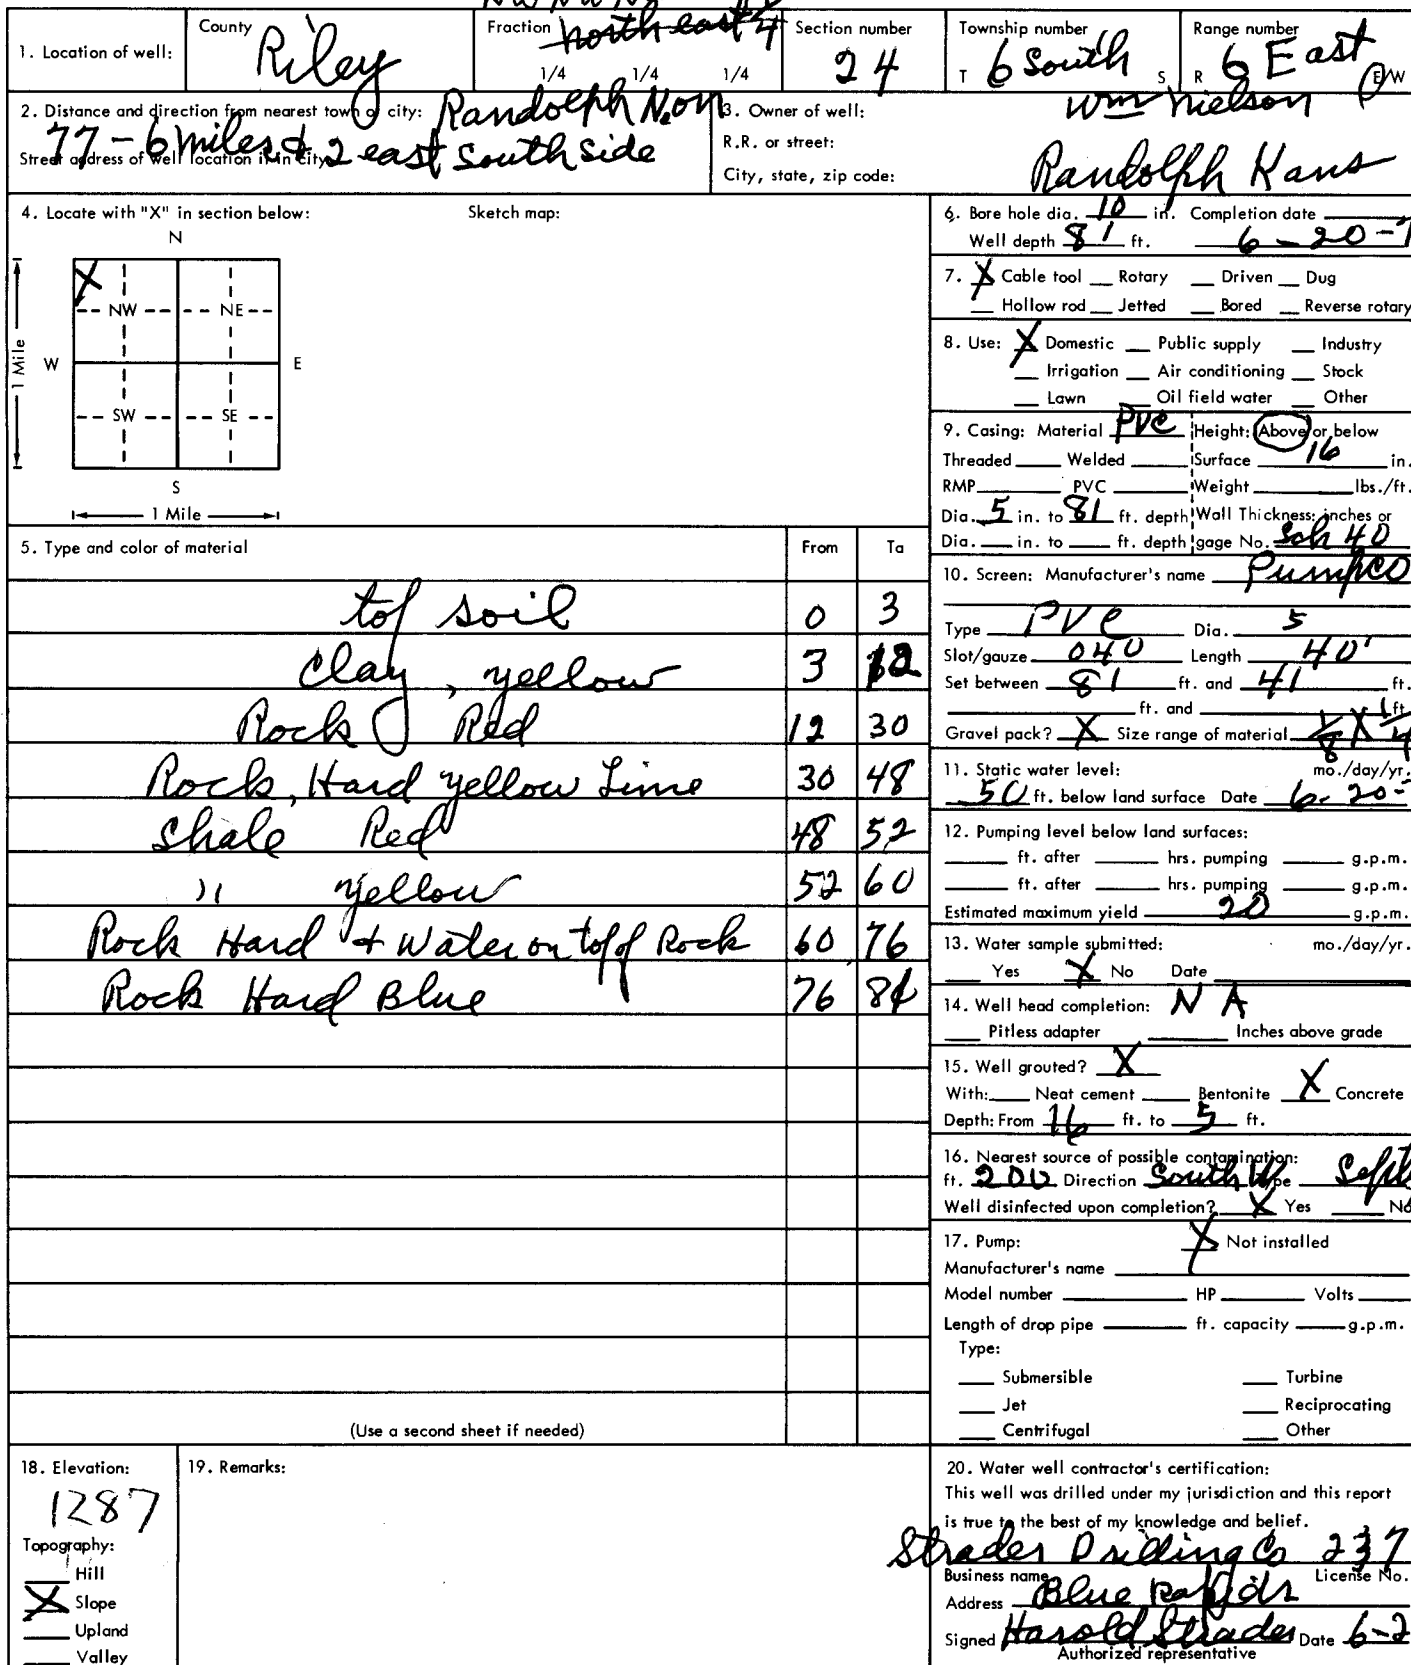 NW NW NW
1. Location of well: County Riley Fraction north east 4 Section number 24 Township number T 6 South S Range number R 6 East E/W
1/4 1/4 1/4
2. Distance and direction from nearest town or city: Randolph N. on
77 - 6 miles & 2 east South side
Street address of well location if in city:
3. Owner of well: Wm Nielson
R.R. or street:
City, state, zip code: Randolph Kans
4. Locate with "X" in section below: Sketch map:
N
X
NW NE
1 Mile W E
SW SE
S
1 Mile
5. Type and color of material From Ta
top soil 0 3
Clay, yellow 3 12
Rock Red 12 30
Rock, Hard yellow Lime 30 48
Shale Red 48 52
" yellow 52 60
Rock Hard & Water on top of Rock 60 76
Rock Hard Blue 76 81
(Use a second sheet if needed)
6. Bore hole dia. 10 in. Completion date
Well depth 81 ft. 6-20-7
7. X Cable tool Rotary Driven Dug
Hollow rod Jetted Bored Reverse rotary
8. Use: X Domestic Public supply Industry
Irrigation Air conditioning Stock
Lawn Oil field water Other
9. Casing: Material PVC Height: Above or below
Threaded Welded Surface 16 in.
RMP PVC Weight lbs./ft.
Dia. 5 in. to 81 ft. depth Wall Thickness: inches or
Dia. in. to ft. depth gage No. Sch 40
10. Screen: Manufacturer's name Pumpco
Type PVC Dia. 5
Slot/gauze 040 Length 40'
Set between 81 ft. and 41 ft.
ft. and ft.
Gravel pack? X Size range of material 1/8 X 1/4
11. Static water level: mo./day/yr.
50 ft. below land surface Date 6-20-7
12. Pumping level below land surfaces:
ft. after hrs. pumping g.p.m.
ft. after hrs. pumping g.p.m.
Estimated maximum yield 20 g.p.m.
13. Water sample submitted: mo./day/yr.
Yes X No Date
14. Well head completion: N A
Pitless adapter Inches above grade
15. Well grouted? X
With: Neat cement Bentonite X Concrete
Depth: From 16 ft. to 5 ft.
16. Nearest source of possible contamination:
ft. 200 Direction South W Type Sept
Well disinfected upon completion? X Yes No
17. Pump: X Not installed
Manufacturer's name
Model number HP Volts
Length of drop pipe ft. capacity g.p.m.
Type:
Submersible Turbine
Jet Reciprocating
Centrifugal Other
18. Elevation:
1287
Topography:
Hill
X Slope
Upland
Valley
19. Remarks:
20. Water well contractor's certification:
This well was drilled under my jurisdiction and this report
is true to the best of my knowledge and belief.
Strader Drilling Co 237
Business name License No.
Address Blue Rapids
Signed Harold Strader Date 6-2
Authorized representative